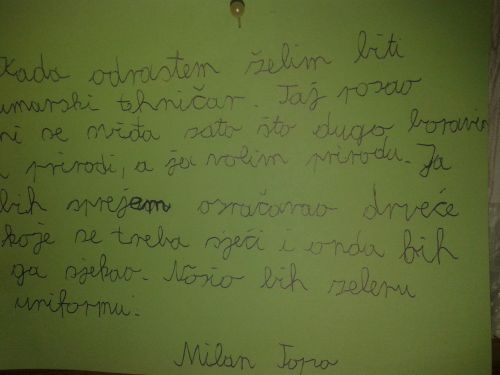 Kada odrastem želim biti
umarski tehničar. Taj posao
mi se sviđa zato što dugo boravim
u prirodi, a ja volim prirodu. Ja
bih sprejem označavao drveće
koje se treba sjeći i onda bih
ga sjekao. Nosio bih zelenu
uniformu.
Milan